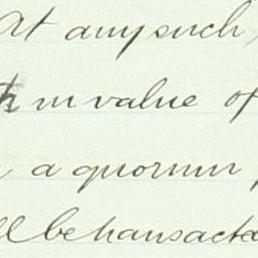 At any such
in value of
a quorum
be transacted